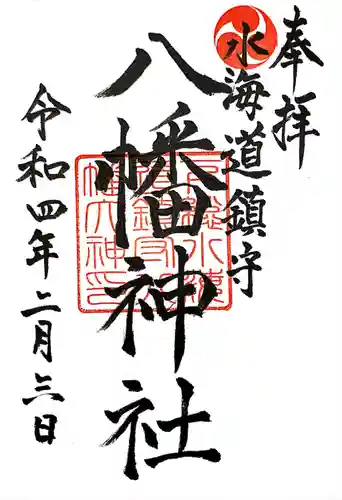 奉拝
水海道鎮守
八幡神社
令和四年二月三日